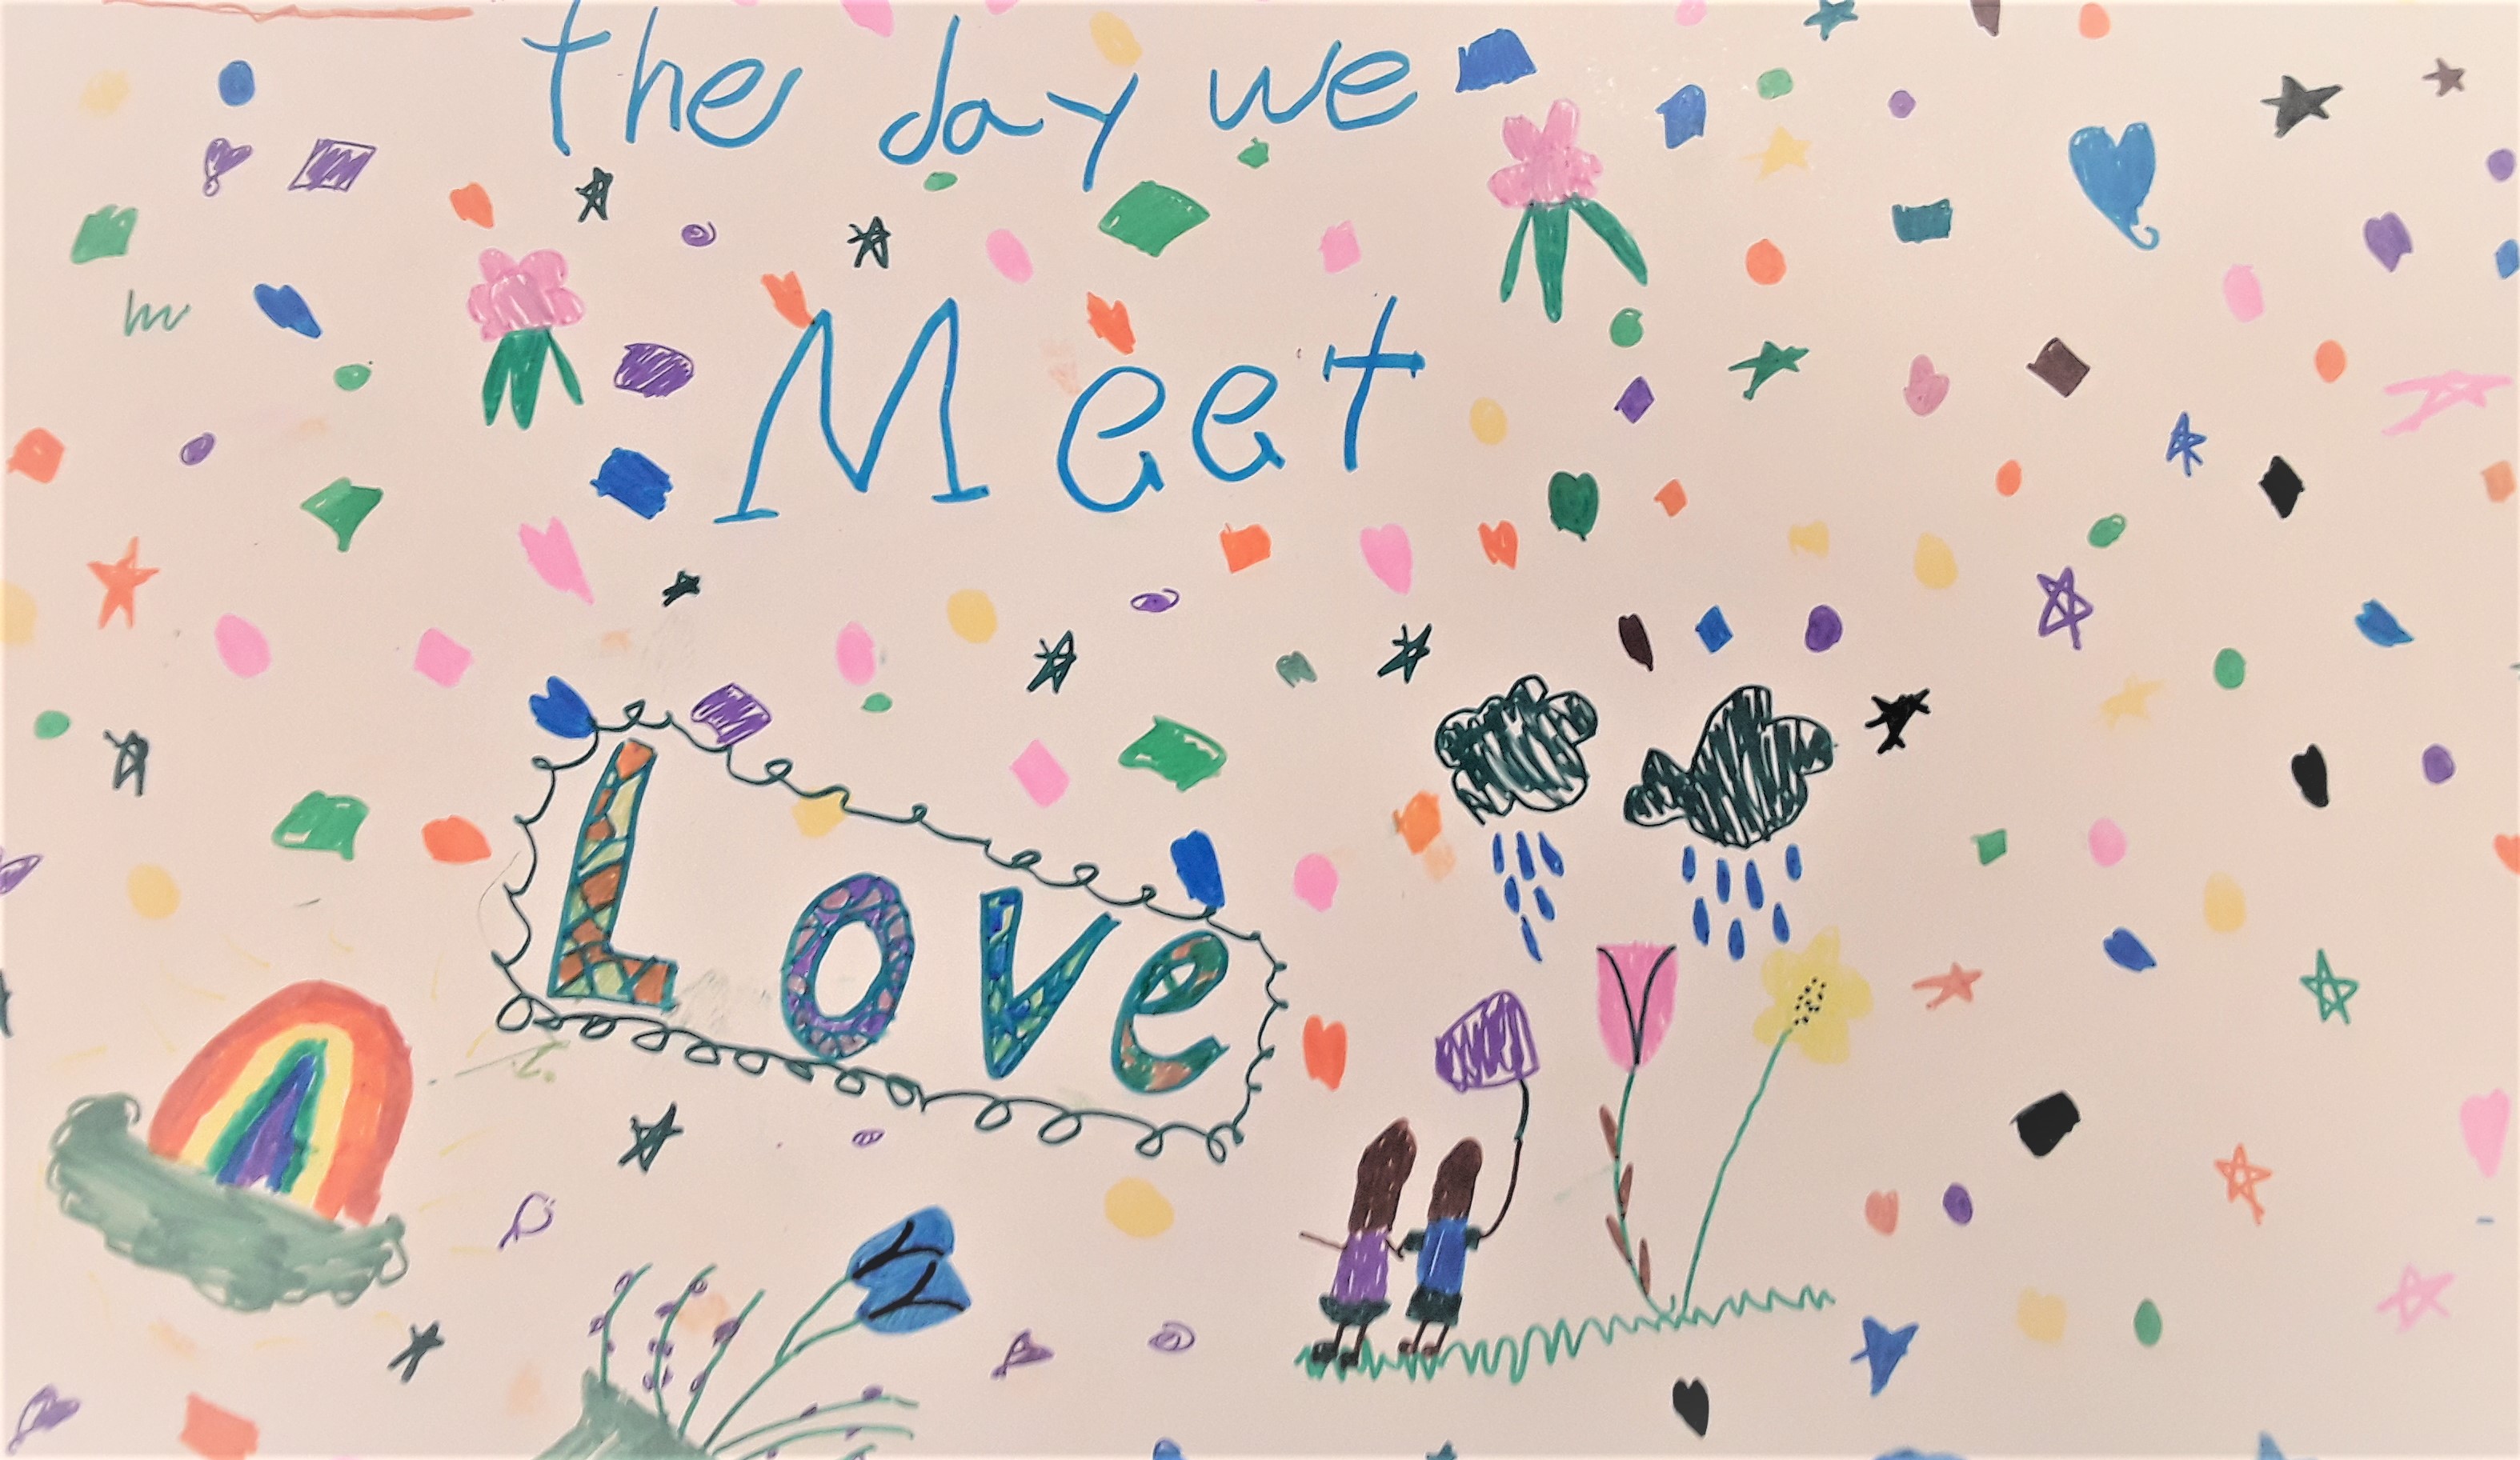 the day we
Meet
Love